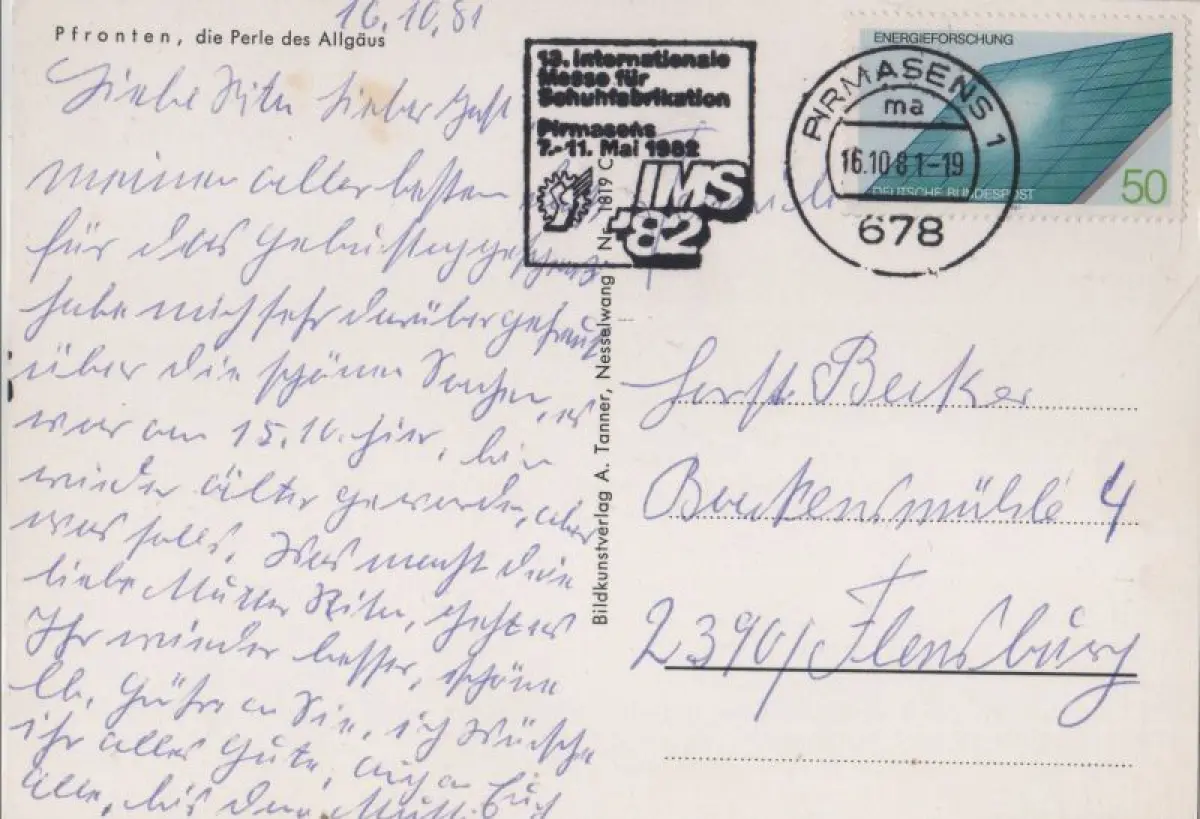 16.10.81
Pfronten, die Perle des Allgäus
Liebe Rita lieber Horst
meinen aller besten
für das Geburtstaggeschenk
habe mich sehr darüber gefreut
über die schönen Sachen, es
war am 15.10. hier, bin
wieder älter geworden, aber
was solls. Was macht deine
liebe Mutter Rita, geht es
Ihr wieder besser, schöne
lb. Grüße an Sie, ich wünsche
ihr alles Gute, auch an Euch
alle, bis dann Euch
13. Internationale
Messe für
Schuhfabrikation
Pirmasens
7.-11. Mai 1982
IMS
'82
PIRMASENS 1
ma
16.10.81-19
678
ENERGIEFORSCHUNG
DEUTSCHE BUNDESPOST
50
Bildkunstverlag A. Tanner, Nesselwang · Nr. 1819 C
Horst Becker
Bockensmühle 4
2390/ Flensburg